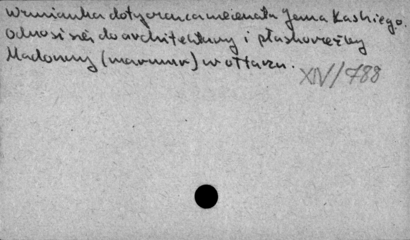 wzmianka dotycząca mecenata Jana Kaskiego.
Odnosi się do architektury i płaskorzeźby
Madonny (marmur) w ołtarzu.
XIV/788